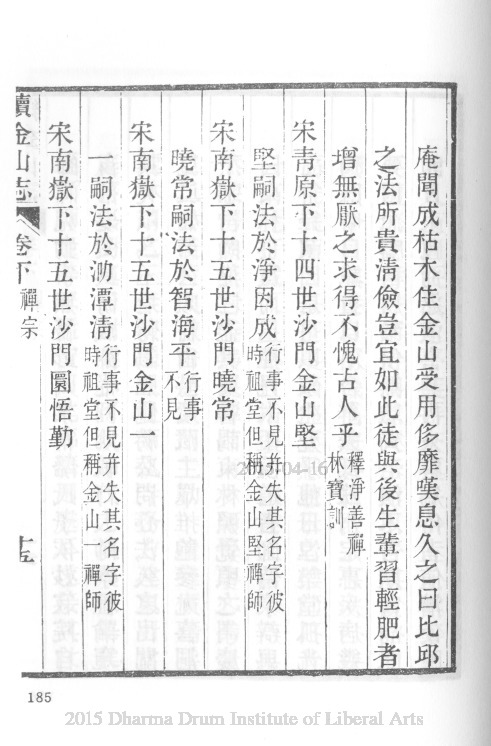 庵聞成枯木住金山受用侈靡嘆息久之曰比邱
之法所貴清儉豈宜如此徒與後生輩習輕肥者
增無厭之求得不愧古人乎釋淨善禪林寶訓
宋青原下十四世沙門金山堅
堅嗣法於淨因成行事不見并失其名字彼時祖堂但稱金山堅禪師
宋南嶽下十五世沙門曉常
曉常嗣法於智海平行事不見
宋南嶽下十五世沙門金山一
一嗣法於泐潭清行事不見并失其名字彼時祖堂但稱金山一禪師
宋南嶽下十五世沙門圜悟勤
續金山志 卷下 禪宗 十五
2015-04-16
185
2015 Dharma Drum Institute of Liberal Arts